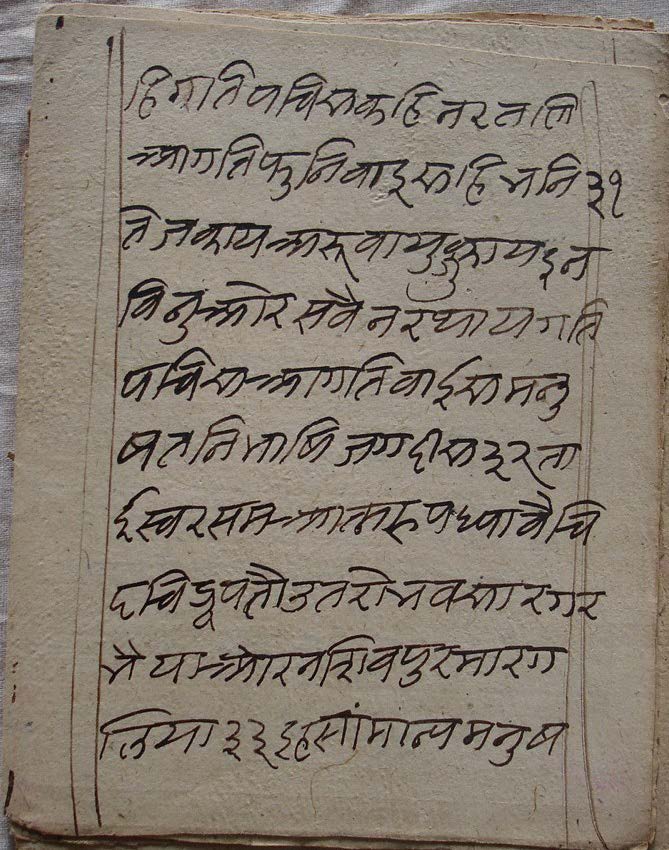 हि गति पचिस कहि नर तलि
आगति फुनि वाइस हि भनि ३१
तेजकाय अरू वायुकाय इन
विनु ओर सवै नर थाय गति
पचिस आगति वाईस मनु
षतनि भाषि जगदीस ३२ ता
ईस्वर सम आत्मरूप ध्यावै चि
दचिद्रूप तौ उतरो भवसागर
भैया ओर न शिवपुर मारग
लिया ३३ इह सांमान्य मनुष